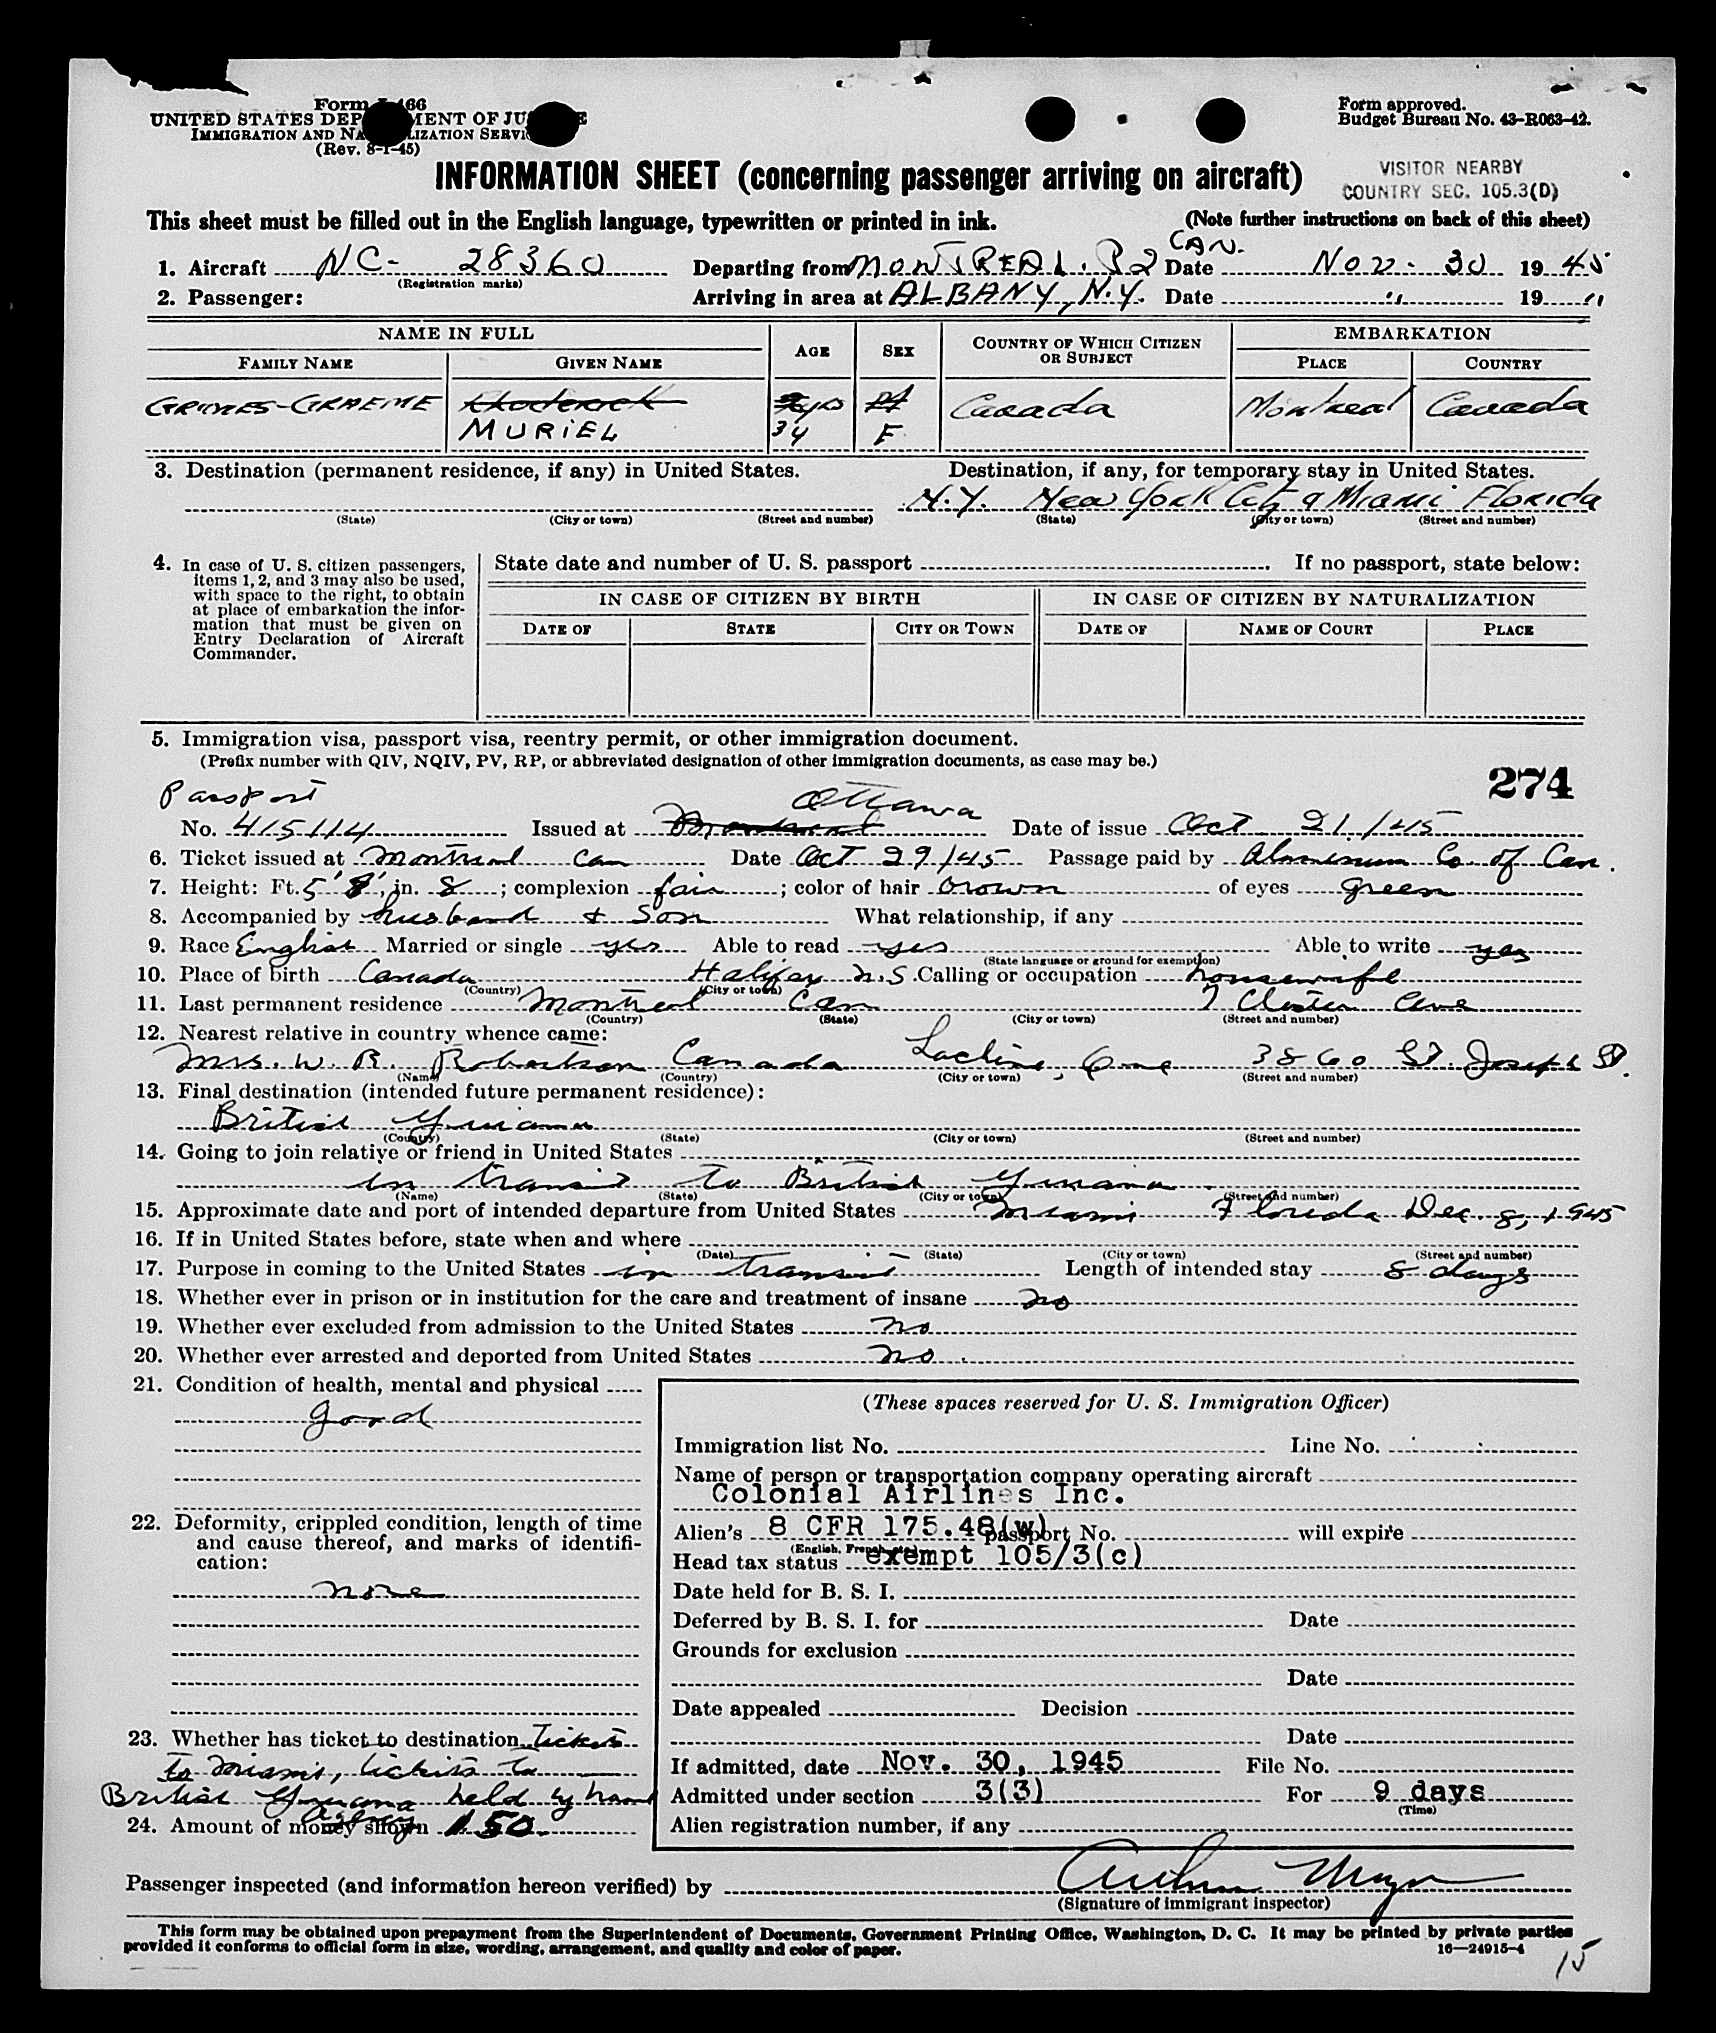 Form I-466
UNITED STATES DEPARTMENT OF JUSTICE
IMMIGRATION AND NATURALIZATION SERVICE
(Rev. 8-1-45)
Form approved.
Budget Bureau No. 43-R063-42.
INFORMATION SHEET (concerning passenger arriving on aircraft)
VISITOR NEARBY
COUNTRY SEC. 105.3(D)
This sheet must be filled out in the English language, typewritten or printed in ink.
(Note further instructions on back of this sheet)
1. Aircraft NC- 28360 Departing from MONTREAL. P2 CAN. Date Nov- 30 1945
(Registration marks)
2. Passenger: Arriving in area at ALBANY, N.Y. Date " 19 "
NAME IN FULL AGE SEX COUNTRY OF WHICH CITIZEN OR SUBJECT EMBARKATION
FAMILY NAME GIVEN NAME PLACE COUNTRY
GRIMES-GRAEME Rhoderick yrs Canada Montreal Canada
MURIEL 34 F
3. Destination (permanent residence, if any) in United States. Destination, if any, for temporary stay in United States.
N.Y. New York City & Miami Florida
(State) (City or town) (Street and number) (State) (City or town) (Street and number)
4. In case of U. S. citizen passengers, items 1, 2, and 3 may also be used, with space to the right, to obtain at place of embarkation the information that must be given on Entry Declaration of Aircraft Commander.
State date and number of U. S. passport If no passport, state below:
IN CASE OF CITIZEN BY BIRTH IN CASE OF CITIZEN BY NATURALIZATION
DATE OF STATE CITY OR TOWN DATE OF NAME OF COURT PLACE
5. Immigration visa, passport visa, reentry permit, or other immigration document.
(Prefix number with QIV, NQIV, PV, RP, or abbreviated designation of other immigration documents, as case may be.)
274
Passport Ottawa
No. 415114 Issued at Montreal Date of issue Oct 21/45
6. Ticket issued at Montreal Can Date Oct 29/45 Passage paid by Aluminum Co of Can.
7. Height: Ft. 5' 8", in. 8; complexion fair; color of hair brown of eyes green
8. Accompanied by husband & son What relationship, if any
9. Race English Married or single yes Able to read yes Able to write yes
(State language or ground for exemption)
10. Place of birth Canada Halifax N.S. Calling or occupation housewife
(Country) (City or town)
11. Last permanent residence Montreal Can 7 Ave
(Country) (State) (City or town) (Street and number)
12. Nearest relative in country whence came:
Mrs. W. R. Robertson Canada Lachine, Que 3860 St. Joseph St.
(Name) (Country) (City or town) (Street and number)
13. Final destination (intended future permanent residence):
British Guiana
(Country) (State) (City or town) (Street and number)
14. Going to join relative or friend in United States
in transit to British Guiana.
(Name) (State) (City or town) (Street and number)
15. Approximate date and port of intended departure from United States Miami Florida Dec. 8, 1945
16. If in United States before, state when and where
(Date) (State) (City or town) (Street and number)
17. Purpose in coming to the United States in transit Length of intended stay 8 days
18. Whether ever in prison or in institution for the care and treatment of insane no
19. Whether ever excluded from admission to the United States no
20. Whether ever arrested and deported from United States no
21. Condition of health, mental and physical
good
22. Deformity, crippled condition, length of time and cause thereof, and marks of identification:
none
23. Whether has ticket to destination Tickets
to Miami, tickets to
British Guiana held by
Agency
24. Amount of money shown 150.
(These spaces reserved for U. S. Immigration Officer)
Immigration list No. Line No.
Name of person or transportation company operating aircraft
Colonial Airlines Inc.
Alien's 8 CFR 175.48(w) passport No. will expire
(English, French, etc.)
Head tax status exempt 105/3(c)
Date held for B. S. I.
Deferred by B. S. I. for Date
Grounds for exclusion
Date
Date appealed Decision
Date
If admitted, date Nov. 30, 1945 File No.
Admitted under section 3(3) For 9 days
(Time)
Alien registration number, if any
Passenger inspected (and information hereon verified) by
(Signature of immigrant inspector)
This form may be obtained upon prepayment from the Superintendent of Documents, Government Printing Office, Washington, D. C. It may be printed by private parties
provided it conforms to official form in size, wording, arrangement, and quality and color of paper.
16—24915-4
15